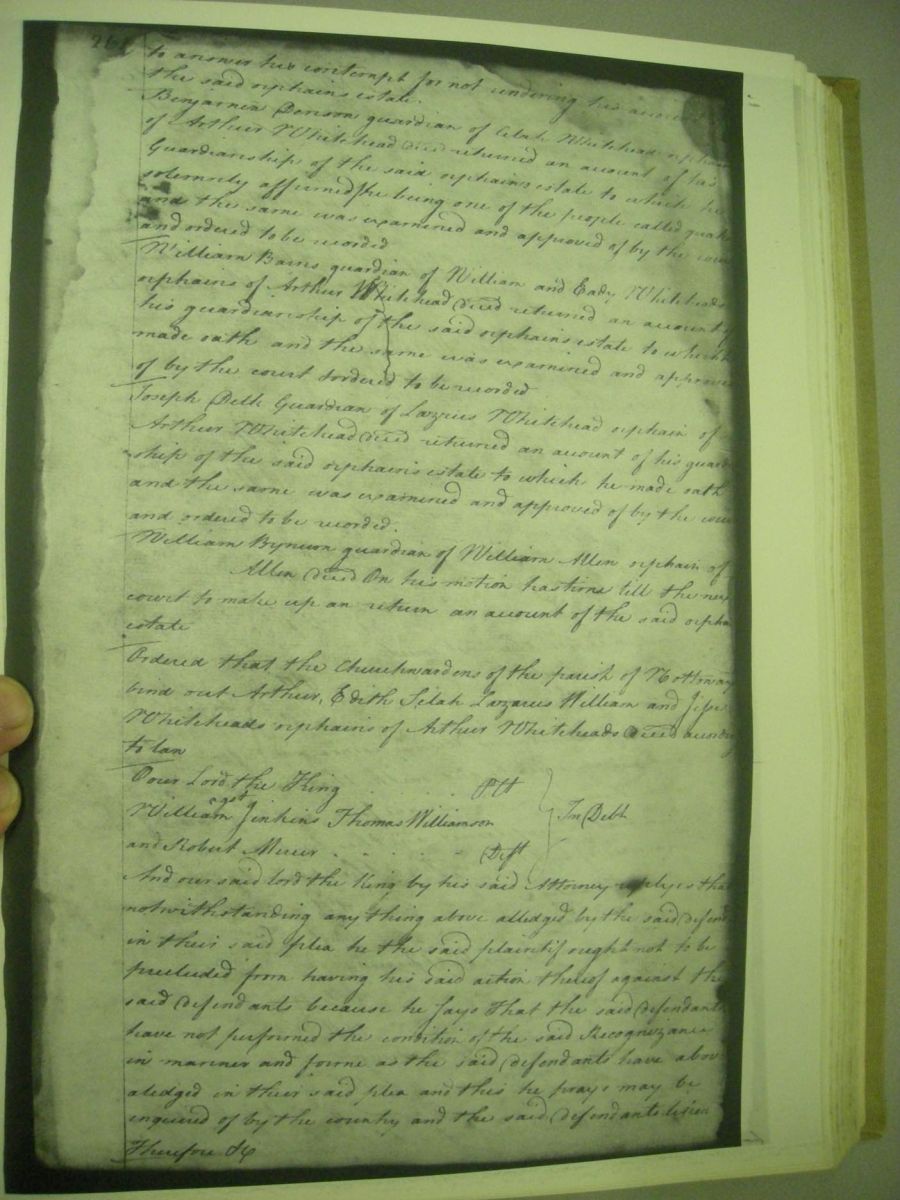 to answer his contempt for not rendering his account
the said orphains estate.
Benjamin guardian of Celah Whitehead orphain
of Arthur Whitehead decd returned an account of his
Guardianship of the said orphains estate to which he
solemnly affirmed he being one of the people called quak
and the same was examined and approved of by the cour
and ordered to be recorded
William Bains guardian of William and Eady Whiteheads
orphains of Arthur Whitehead decd returned an account of
his guardianship of the said orphains estate to which h
made oath and the same was examined and approve
of by the court & ordered to be recorded
Joseph Delk Guardian of Lazrus Whitehead orphain of
Arthur Whitehead decd returned an account of his guard
ship of the said orphains estate to which he made oath
and the same was examined and approved of by the cour
and ordered to be recorded.
William Bynum guardian of William Allen orphain of
Allen decd On his motion has time till the nex
court to make up an return an account of the said orpha
estate
Ordered that the Churchwardens of the parish of Nottoway
bind out Arthur, Edith Selah Lazarus William and Jesse
Whiteheads orphains of Arthur Whiteheads decd according
to law
Our Lord the King Plt
against
William Jinkins Thomas Williamson In Debt
and Robert Mercer Deft
And our said lord the King by his said Attorney replyes that
notwithstanding any thing above alledged by the said defend
in their said plea he the said plaintif ought not to be
precluded from having his said action thereof against the
said defendants because he says that the said defendants
have not performed the condition of the said Recognizance
in manner and forme as the said defendants have abov
aledged in their said plea and this he prays may be
inquired of by the country and the said defendants likew
Therefore &c